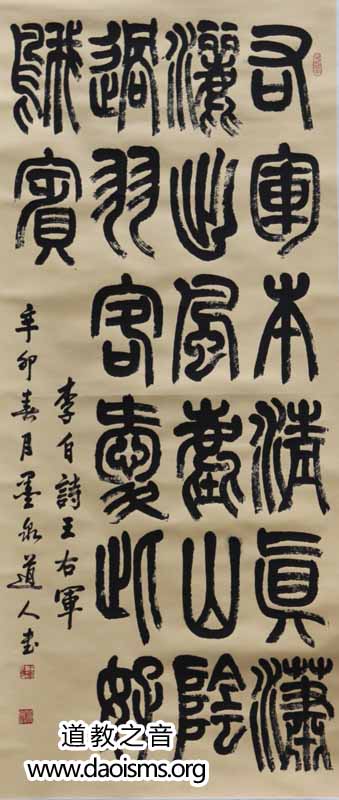 右軍本清真瀟
灑出風塵山陰
過羽客愛此好
鵝賓
李白詩王右軍
辛卯春月墨泉道人书
道教之音
www.daoisms.org